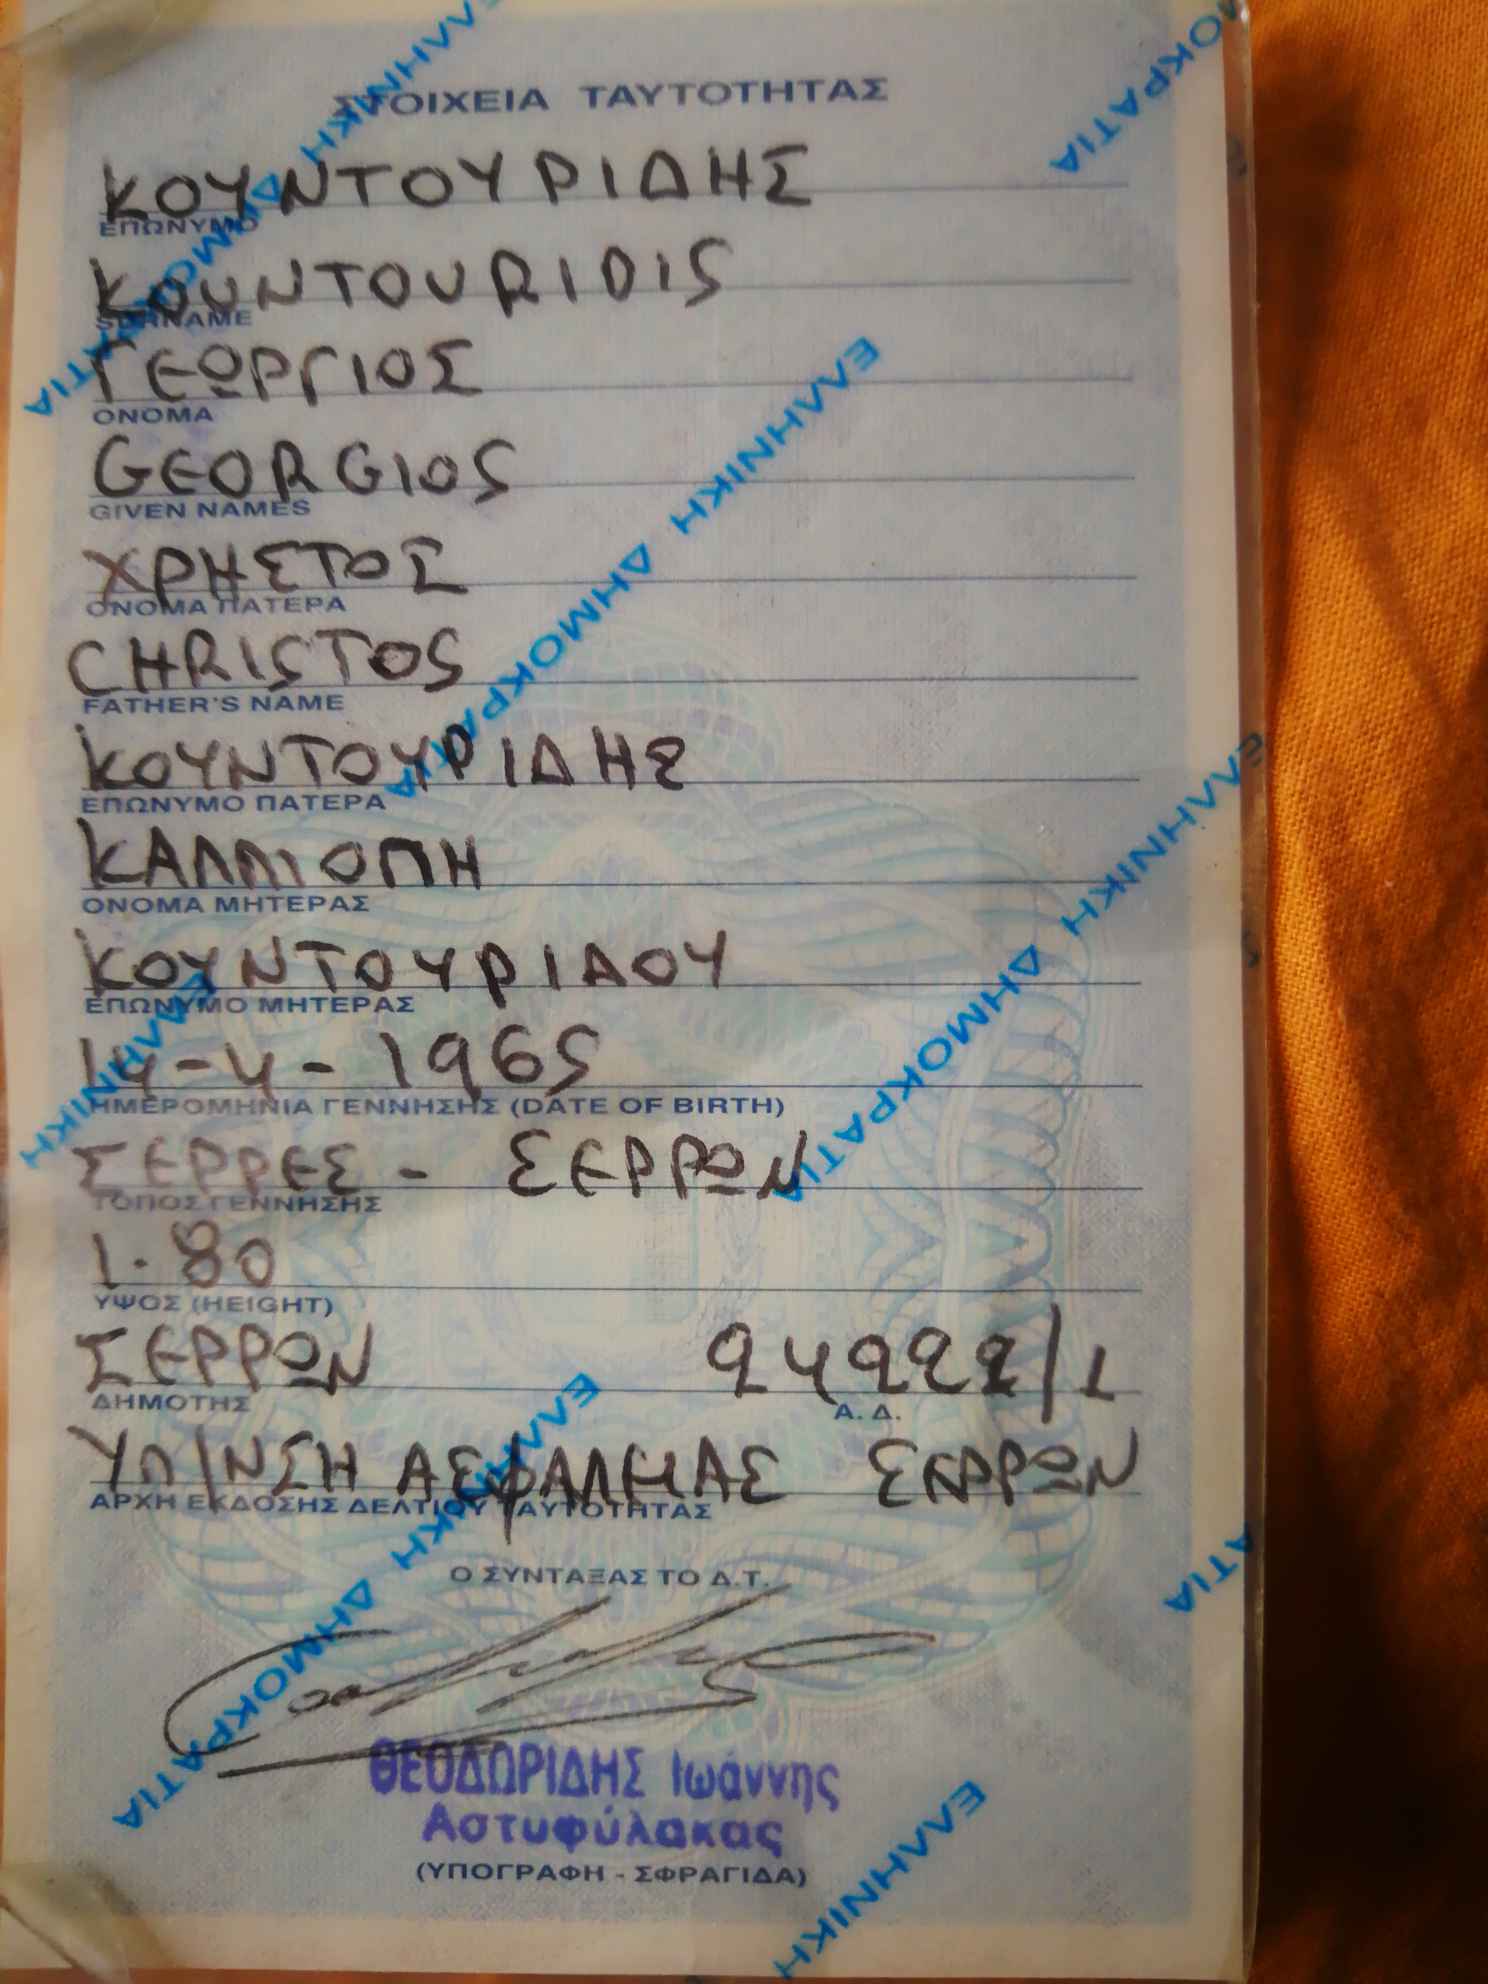 ΣΤΟΙΧΕΙΑ ΤΑΥΤΟΤΗΤΑΣ
ΚΟΥΝΤΟΥΡΙΔΗΣ
ΕΠΩΝΥΜΟ
KOUNTOURIDIS
SURNAME
ΓΕΩΡΓΙΟΣ
ΟΝΟΜΑ
GEORGIOS
GIVEN NAMES
ΧΡΗΣΤΟΣ
ΟΝΟΜΑ ΠΑΤΕΡΑ
CHRISTOS
FATHER'S NAME
ΚΟΥΝΤΟΥΡΙΔΗΣ
ΕΠΩΝΥΜΟ ΠΑΤΕΡΑ
ΚΑΛΛΙΟΠΗ
ΟΝΟΜΑ ΜΗΤΕΡΑΣ
ΚΟΥΝΤΟΥΡΙΔΟΥ
ΕΠΩΝΥΜΟ ΜΗΤΕΡΑΣ
14-4-1965
ΗΜΕΡΟΜΗΝΙΑ ΓΕΝΝΗΣΗΣ (DATE OF BIRTH)
ΣΕΡΡΕΣ - ΣΕΡΡΩΝ
ΤΟΠΟΣ ΓΕΝΝΗΣΗΣ
1.80
ΥΨΟΣ (HEIGHT)
ΣΕΡΡΩΝ
ΔΗΜΟΤΗΣ Α. Δ.
ΥΠ/ΝΣΗ ΑΣΦΑΛΕΙΑΣ ΣΕΡΡΩΝ
ΑΡΧΗ ΕΚΔΟΣΗΣ ΔΕΛΤΙΟΥ ΤΑΥΤΟΤΗΤΑΣ
Ο ΣΥΝΤΑΞΑΣ ΤΟ Δ.Τ.
ΘΕΟΔΩΡΙΔΗΣ Ιωάννης
Αστυφύλακας
(ΥΠΟΓΡΑΦΗ - ΣΦΡΑΓΙΔΑ)
ΕΛΛΗΝΙΚΗ ΔΗΜΟΚΡΑΤΙΑ
ΕΛΛΗΝΙΚΗ ΔΗΜΟΚΡΑΤΙΑ
ΕΛΛΗΝΙΚΗ ΔΗΜΟΚΡΑΤΙΑ
ΕΛΛΗΝΙΚΗ ΔΗΜΟΚΡΑΤΙΑ
ΕΛΛΗΝΙΚΗ
ΕΛΛΗΝΙΚΗ